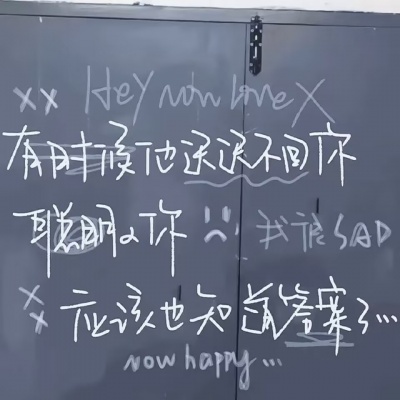 xx Hey now love X
有时候他迟迟不回你
聪明的你 我很SAD
xx 应该也知道答案了...
now happy...